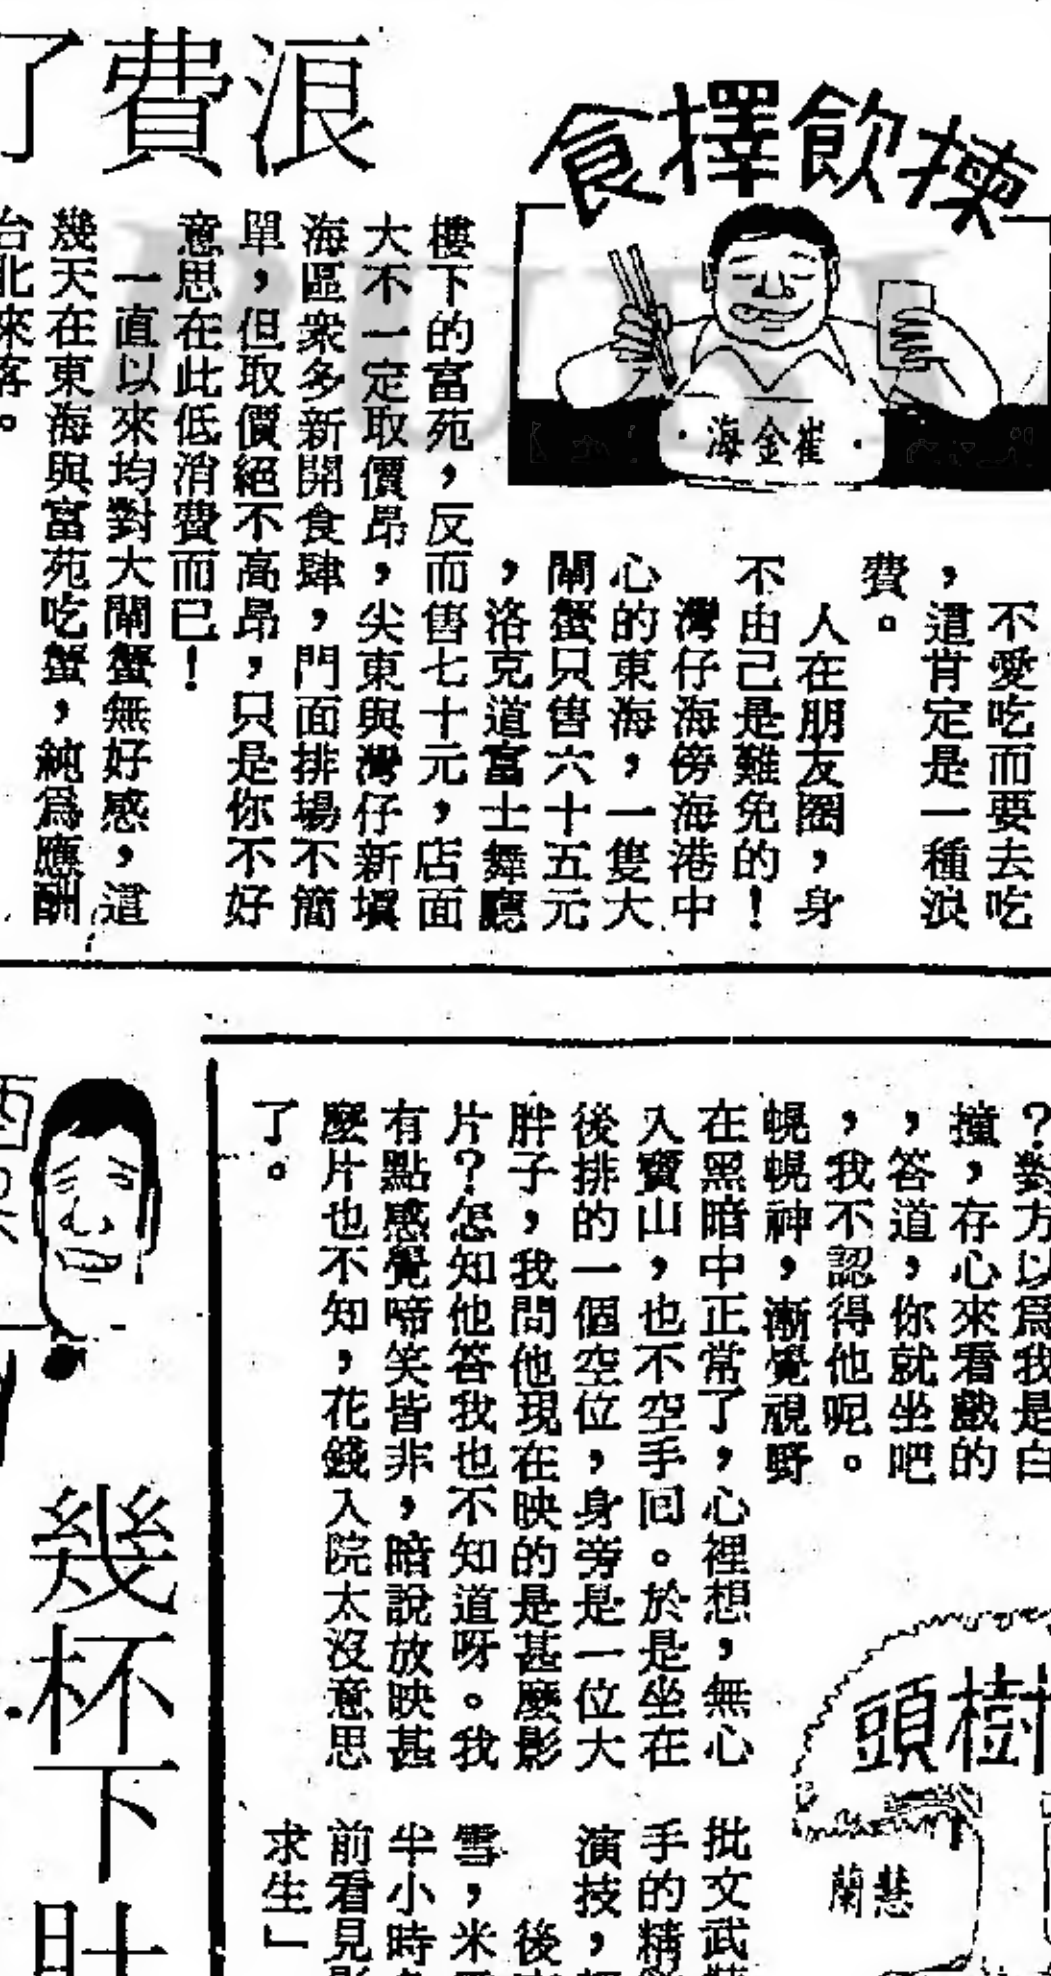 揀飲擇食
崔金海
浪費了
不愛吃而要去吃
，這肯定是一種浪
費。
人在朋友圈，身
不由己是難免的！
灣仔海傍海港中
心的東海，一隻大
閘蟹只售六十五元
，洛克道富士舞廳
樓下的富苑，反而售七十元，店面
大不一定取價昂，尖東與灣仔新填
海區衆多新開食肆，門面排場不簡
單，但取價絕不高昂，只是你不好
意思在此低消費而已！
一直以來均對大閘蟹無好感，這
幾天在東海與富苑吃蟹，純爲應酬
台北來客。
？對方以爲我是白
撞，存心來看戲的
，答道，你就坐吧
，我不認得他呢。
幌幌神，漸覺視野
在黑暗中正常了，心裡想，無心
入寶山，也不空手回。於是坐在
後排的一個空位，身旁是一位大
胖子，我問他現在映的是甚麼影
片？怎知他答我也不知道呀。我
有點感覺啼笑皆非，暗說放映甚
麼片也不知，花錢入院太沒意思
了。
樹頭
慧蘭
批文武
手的精
演技，
後
雪，米
半小時
前看見
求生」
幾杯下肚